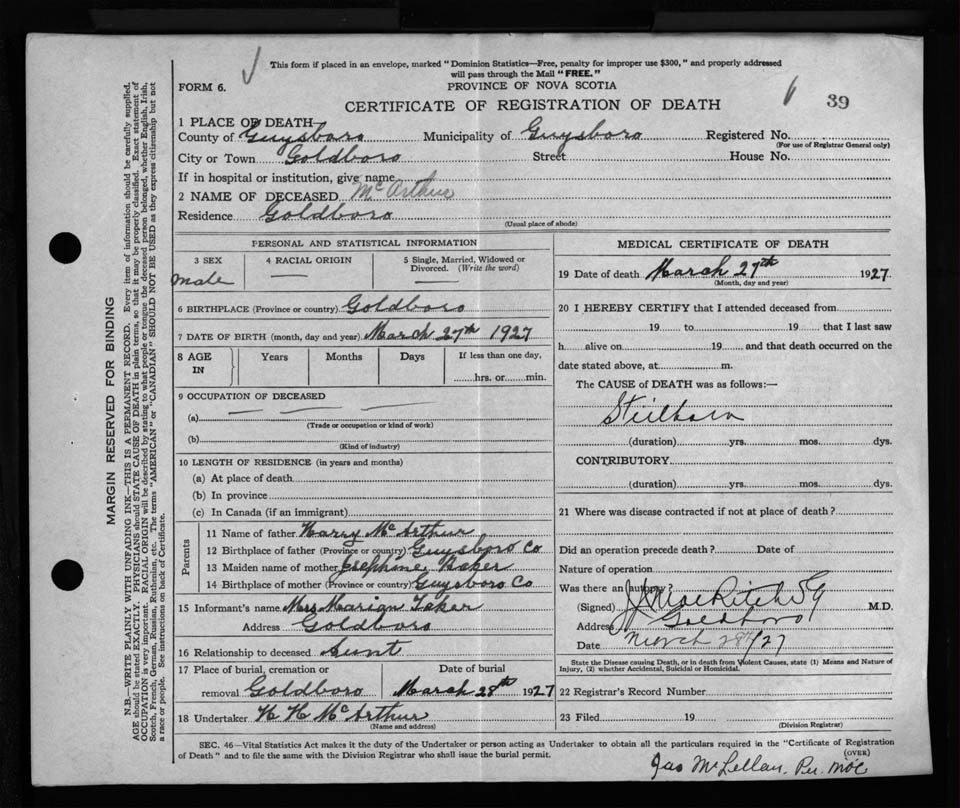 This form if placed in an envelope, marked "Dominion Statistics—Free, penalty for improper use $300," and properly addressed
will pass through the Mail "FREE."
FORM 6.
PROVINCE OF NOVA SCOTIA
CERTIFICATE OF REGISTRATION OF DEATH
6 39
1 PLACE OF DEATH
County of Guysboro Municipality of Guysboro Registered No.
(For use of Registrar General only)
City or Town Goldboro Street House No.
If in hospital or institution, give name
2 NAME OF DECEASED McArthur
Residence Goldboro
(Usual place of abode)
PERSONAL AND STATISTICAL INFORMATION
3 SEX 4 RACIAL ORIGIN 5 Single, Married, Widowed or
Divorced. (Write the word)
male — —
6 BIRTHPLACE (Province or country) Goldboro
7 DATE OF BIRTH (month, day and year) March 27th 1927
8 AGE IN Years Months Days If less than one day,
hrs. or min.
9 OCCUPATION OF DECEASED
(a) — — —
(Trade or occupation or kind of work)
(b)
(Kind of industry)
10 LENGTH OF RESIDENCE (in years and months)
(a) At place of death
(b) In province
(c) In Canada (if an immigrant)
Parents
11 Name of father Harry McArthur
12 Birthplace of father (Province or country) Guysboro Co
13 Maiden name of mother Josephine Baker
14 Birthplace of mother (Province or country) Guysboro Co
15 Informant's name Mrs Marian
Address Goldboro
16 Relationship to deceased Aunt
17 Place of burial, cremation or Date of burial
removal Goldboro March 28th 1927
18 Undertaker H H McArthur
(Name and address)
MEDICAL CERTIFICATE OF DEATH
19 Date of death March 27th 1927
(Month, day and year)
20 I HEREBY CERTIFY that I attended deceased from
19 to 19 that I last saw
h alive on 19 and that death occurred on the
date stated above, at m.
The CAUSE of DEATH was as follows:—
Stillborn
(duration) yrs. mos. dys.
CONTRIBUTORY
(duration) yrs. mos. dys.
21 Where was disease contracted if not at place of death?
Did an operation precede death? Date of
Nature of operation
Was there an autopsy?
(Signed) M.D.
Address Goldboro
Date March 28th/27
State the Disease causing Death, or in death from Violent Causes, state (1) Means and Nature of
Injury, (2) whether Accidental, Suicidal or Homicidal.
22 Registrar's Record Number
23 Filed 19
(Division Registrar)
SEC. 46—Vital Statistics Act makes it the duty of the Undertaker or person acting as Undertaker to obtain all the particulars required in the "Certificate of Registration
of Death" and to file the same with the Division Registrar who shall issue the burial permit. (OVER)
Jas McLellan, Per.
MARGIN RESERVED FOR BINDING
N.B.—WRITE PLAINLY WITH UNFADING INK—THIS IS A PERMANENT RECORD. Every item of information should be carefully supplied.
AGE should be stated EXACTLY. PHYSICIANS should STATE CAUSE OF DEATH in plain terms, so that it may be properly classified. Exact statement of
OCCUPATION is very important. RACIAL ORIGIN will be described by stating to what people or tongue the deceased person belonged, whether English, Irish,
Scotch, French, German, Russian, Ruthenian, etc. The terms "AMERICAN" or "CANADIAN" SHOULD NOT BE USED as they express citizenship but not
a race or people. See instructions on back of Certificate.